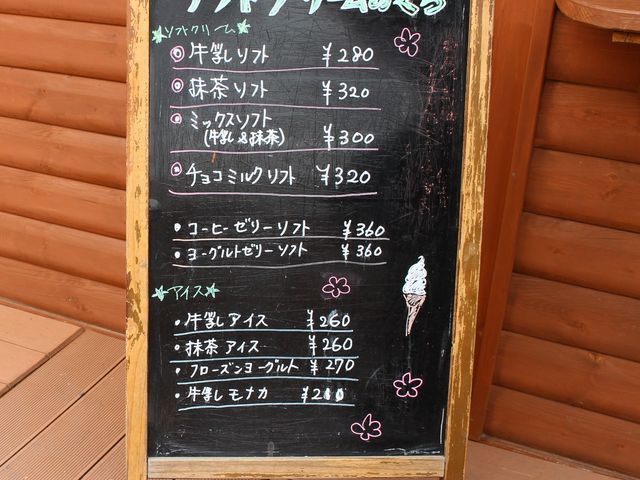 ソフトクリーム
牛乳ソフト ¥280
抹茶ソフト ¥320
ミックスソフト
(牛乳&抹茶) ¥300
チョコミルクソフト ¥320
コーヒーゼリーソフト ¥360
ヨーグルトゼリーソフト ¥360
アイス
牛乳アイス ¥260
抹茶アイス ¥260
フローズンヨーグルト ¥270
牛乳モナカ